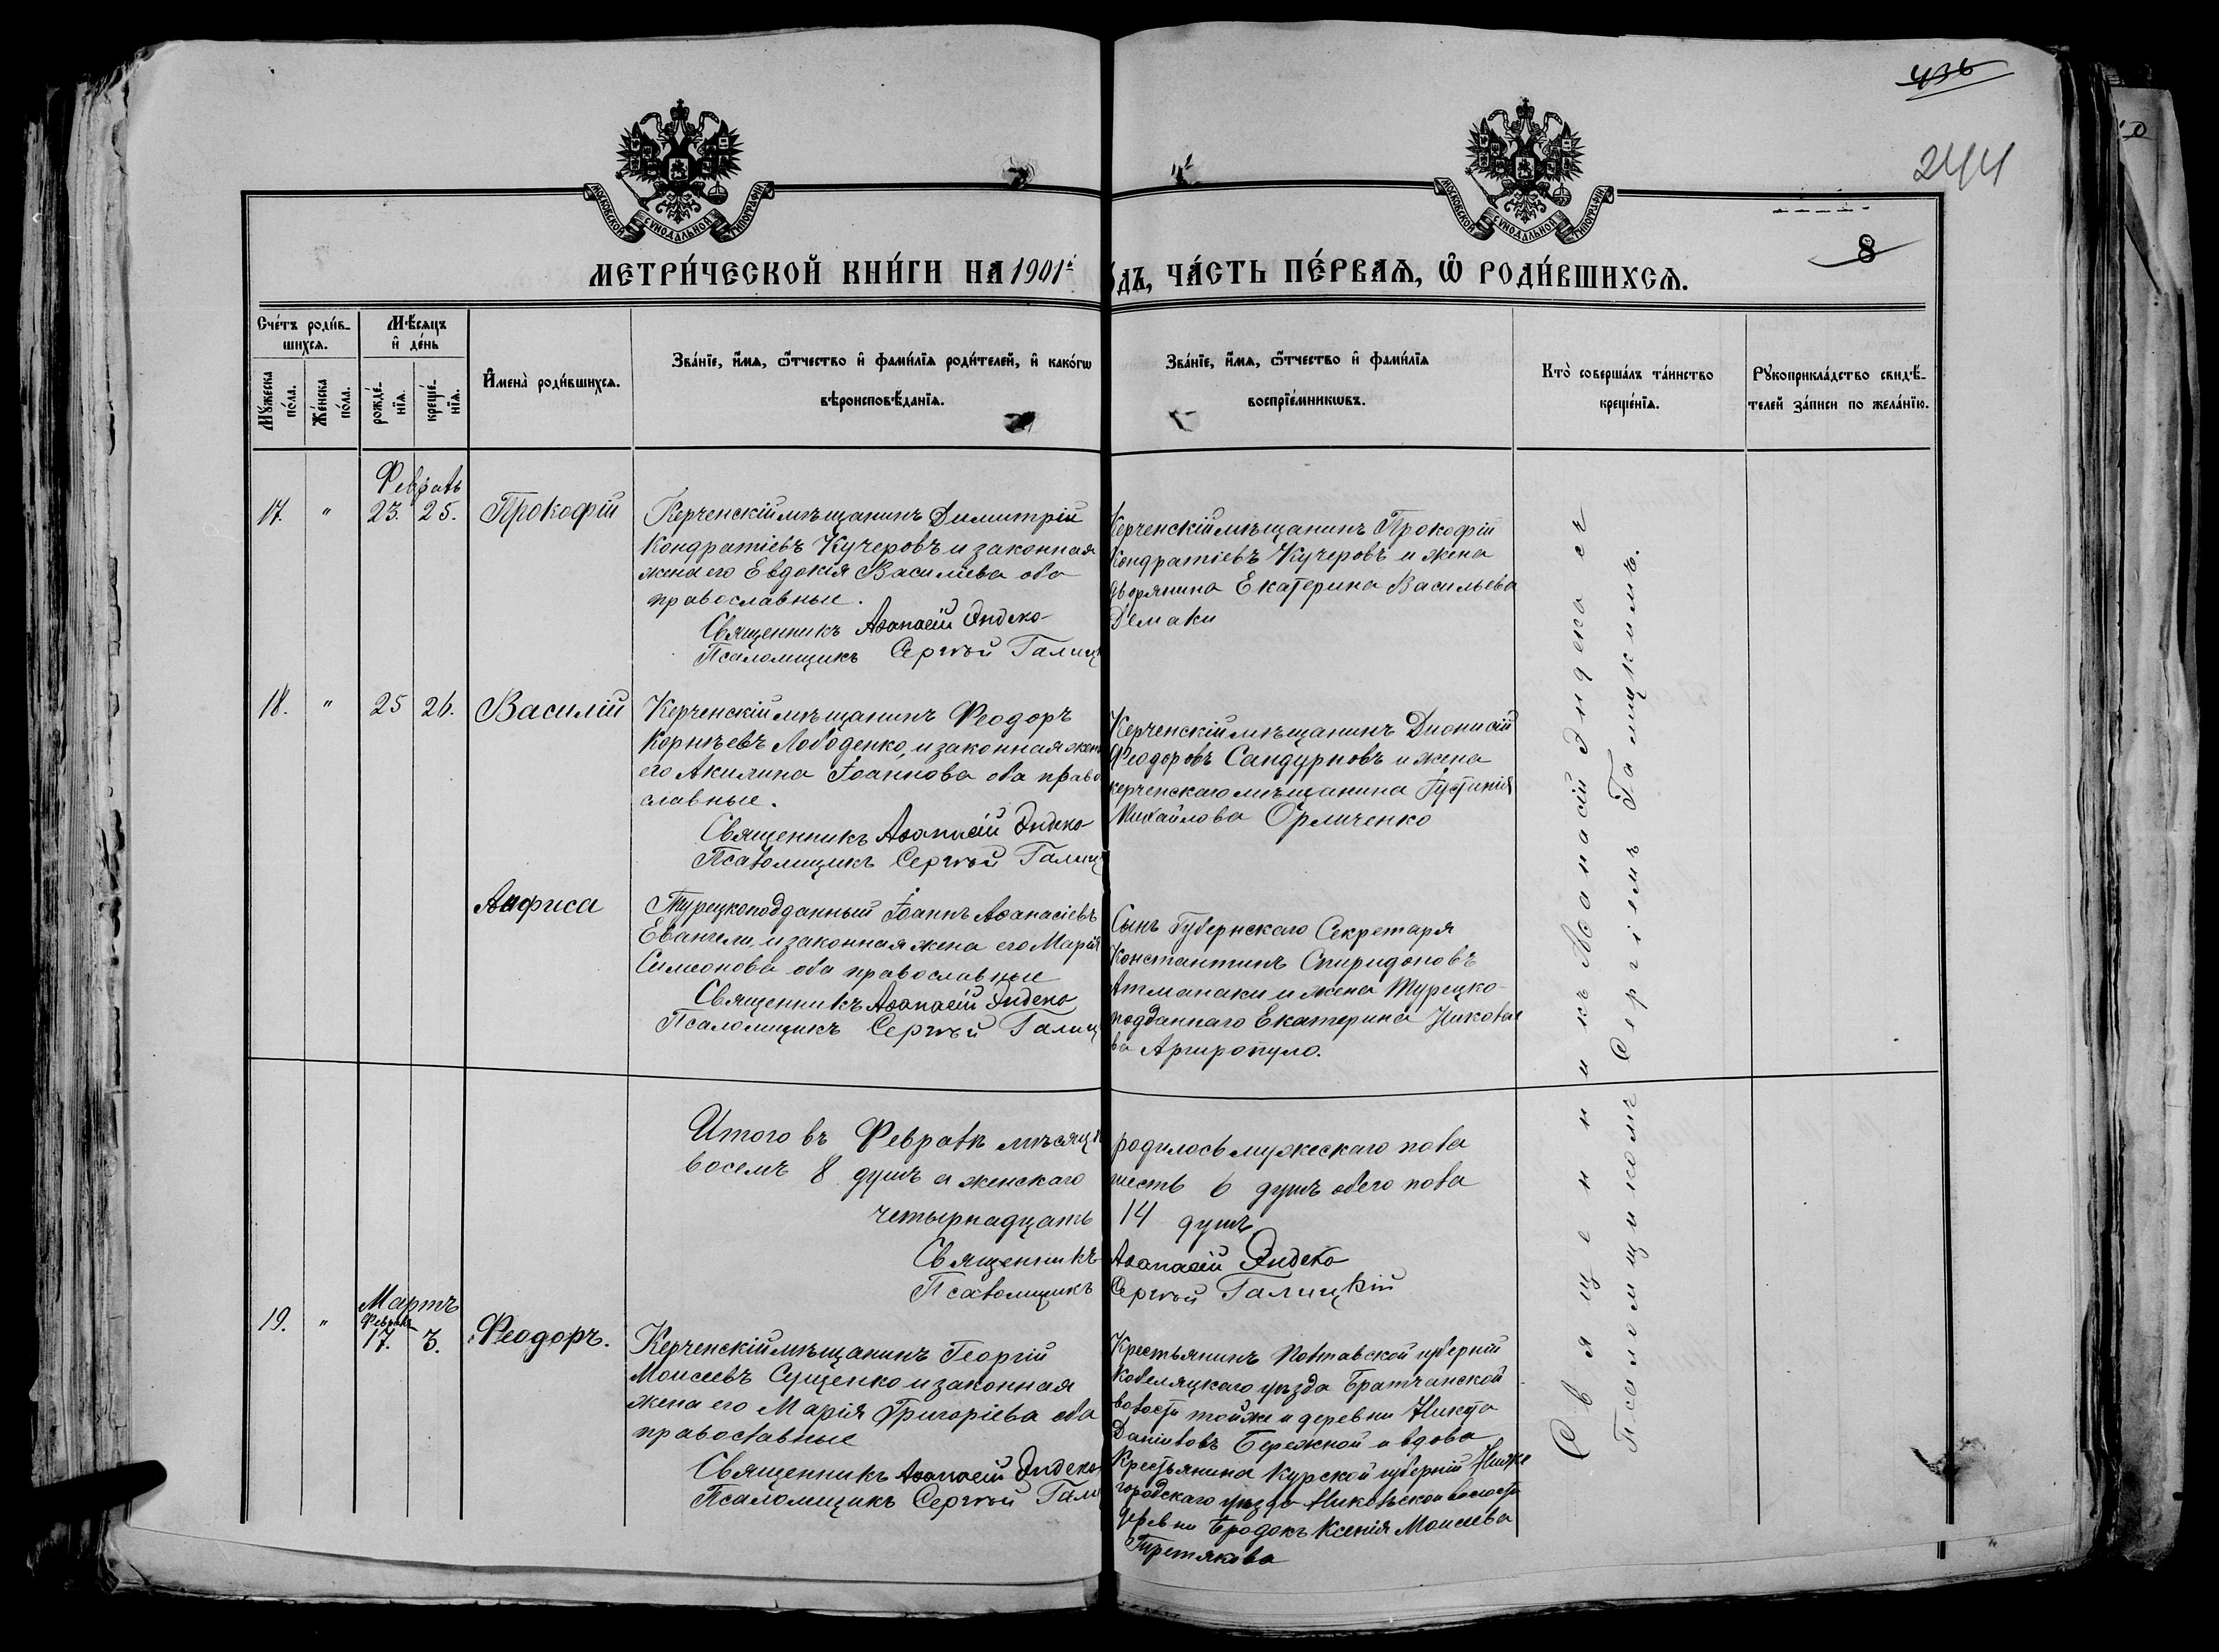 436
244
МОСКОВСКОЙ СѴНОДАЛЬНОЙ ТИПОГРАФІИ
МОСКОВСКОЙ СѴНОДАЛЬНОЙ ТИПОГРАФІИ
8
МЕТРИ́ЧЕСКОЙ КНИ́ГИ НА 1901й
ДЪ, ЧА́СТЬ ПЕ́РВАѦ, Ѽ РОДИ́ВШИХСѦ.
Сче́тъ роди́в-
шихсѧ.
Мꙋ́жеска по́ла.
Же́нска по́ла.
Мѣ́сѧцъ
и҆ де́нь
рожде́-
нїѧ.
креще́-
нїѧ.
И҆мена̀ роди́вшихсѧ.
Зва́нїе, и҆́мѧ, ѻ҆́тчество и҆ фами́лїѧ роди́телей, и҆ како́гѡ
вѣроисповѣ́данїѧ.
Зва́нїе, и҆́мѧ, ѻ҆́тчество и҆ фами́лїѧ
воспрїе́мникѡвъ.
Кто̀ соверша́лъ та́инство
креще́нїѧ.
Рꙋкоприкла́дство свидѣ́-
телей за́писи по жела́нїю.
Февраль
17. " 23. 25. Прокофій
Керченскій мѣщанинъ Димитрій
Кондратіевъ Кучеровъ и законная
жена его Евдокія Василіева оба
православные.
Священникъ Аѳанасій Эндека
Псаломщикъ Сергѣй Галиц
Керченскій мѣщанинъ Прокофій
Кондратіевъ Кучеровъ и жена
дворянина Екатерина Васильева
Демаки
18. " 25 26. Василій
Керченскій мѣщанинъ Феодоръ
Корнѣевъ Лободенко, и законная жена
его Акилина Іоаннова оба право
славные.
Священникъ Аѳанасій Эндека
Псаломщикъ Сергѣй Галиц
Керченскій мѣщанинъ Дионисій
Феодоровъ Сандурновъ и жена
керченскаго мѣщанина Іустинія
Михайлова Орличенко
Анфиса
Турецкоподданный Іоаннъ Аѳанасіевъ
Евангели, и законная жена его Марія
Симеонова оба православные
Священникъ Аѳанасій Эндека
Псаломщикъ Сергѣй Галиц
Сынъ Губернскаго Секретаря
Константинъ Спиридоновъ
Атманаки и жена Турецко-
подданнаго Екатерина Николае
ва Аргиропуло.
Итого въ Февралѣ мѣсяцѣ
восемъ 8 душъ а женскаго
четырнадцать
Священникъ
Псаломщикъ
родилось мужескаго пола
шесть 6 душъ обего пола
14 душъ
Аѳанасій Эндека
Сергѣй Галицкій
Мартъ
Февраль
19. " 17. 3. Феодоръ.
Керченскій мѣщанинъ Георгій
Моисеевъ Сущенко и законная
жена его Марія Григоріева оба
православные
Священникъ Аѳанасій Эндека
Псаломщикъ Сергѣй Гали
Крестьянинъ Полтавской губерніи
Кобеляцкаго уѣзда Братчанской
волости той же и деревни Никита
Даніиловъ Бережной и вдова
Крестьянина Курской губерніи Ниже
городскаго уѣзда Никольской волости
деревни Бродокъ Ксенія Моисеева
Третякова
Священникъ Аѳанасій Эндека съ
Псаломщикомъ Сергіемъ Галицкимъ.